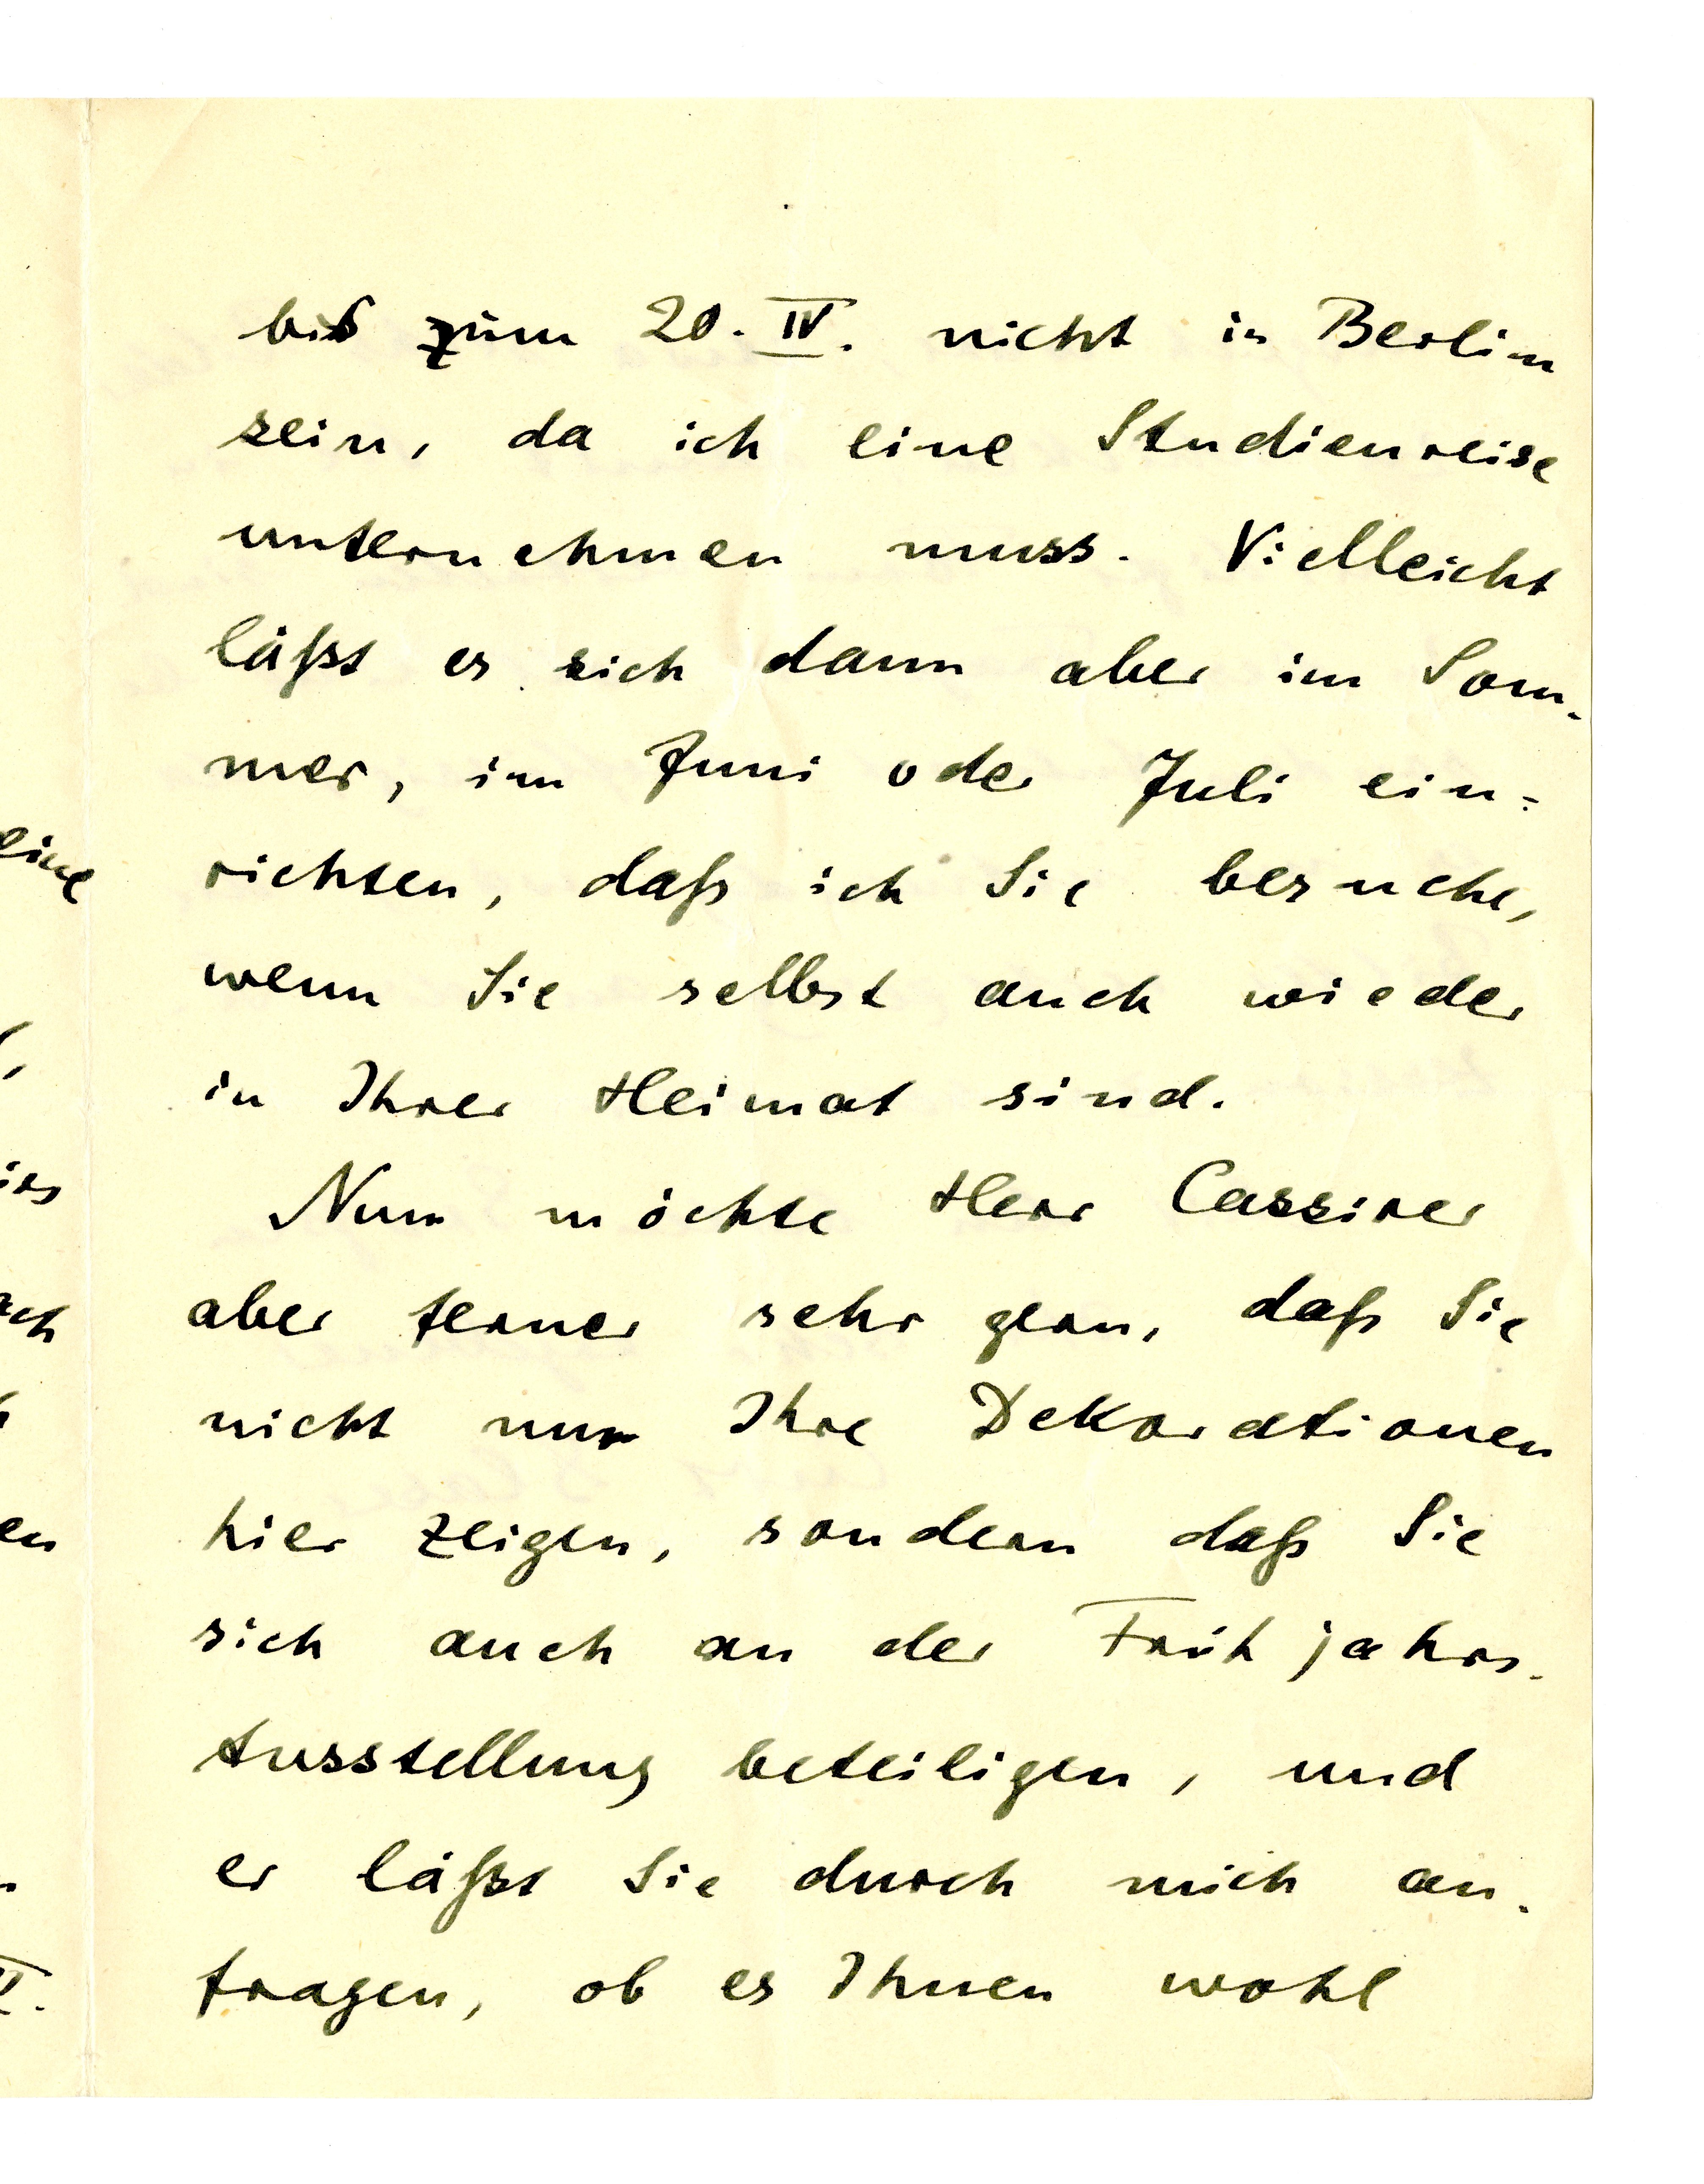 bis zum 20. IV. nicht in Berlin
sein, da ich eine Studienreise
unternehmen muss. Vielleicht
läßst es sich dann aber im Som-
mer, im Juni oder Juli ein=
richten, daß ich Sie besuche,
wenn Sie selbst auch wieder
in Ihrer Heimat sind.
Nun möchte Herr Cassirer
aber ferner sehr gern, daß Sie
nicht nur Ihre Dekorationen
hier zeigen, sondern daß Sie
sich auch an der Frühjahrs-
Ausstellung beteiligen, und
er läßst Sie durch mich an-
fragen, ob es Ihnen wohl
eine
en